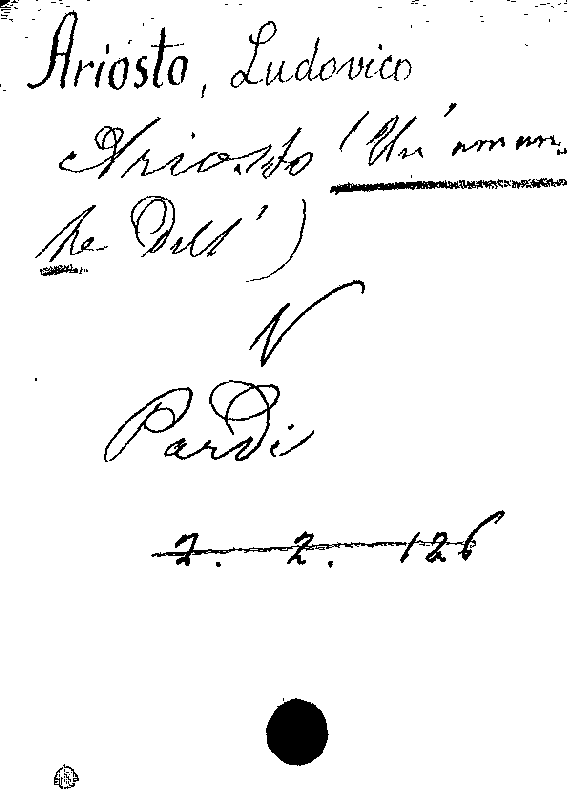 Ariosto, Ludovico
Ariosto (Un'
Dell')
V
Pardi
2. 2. 126